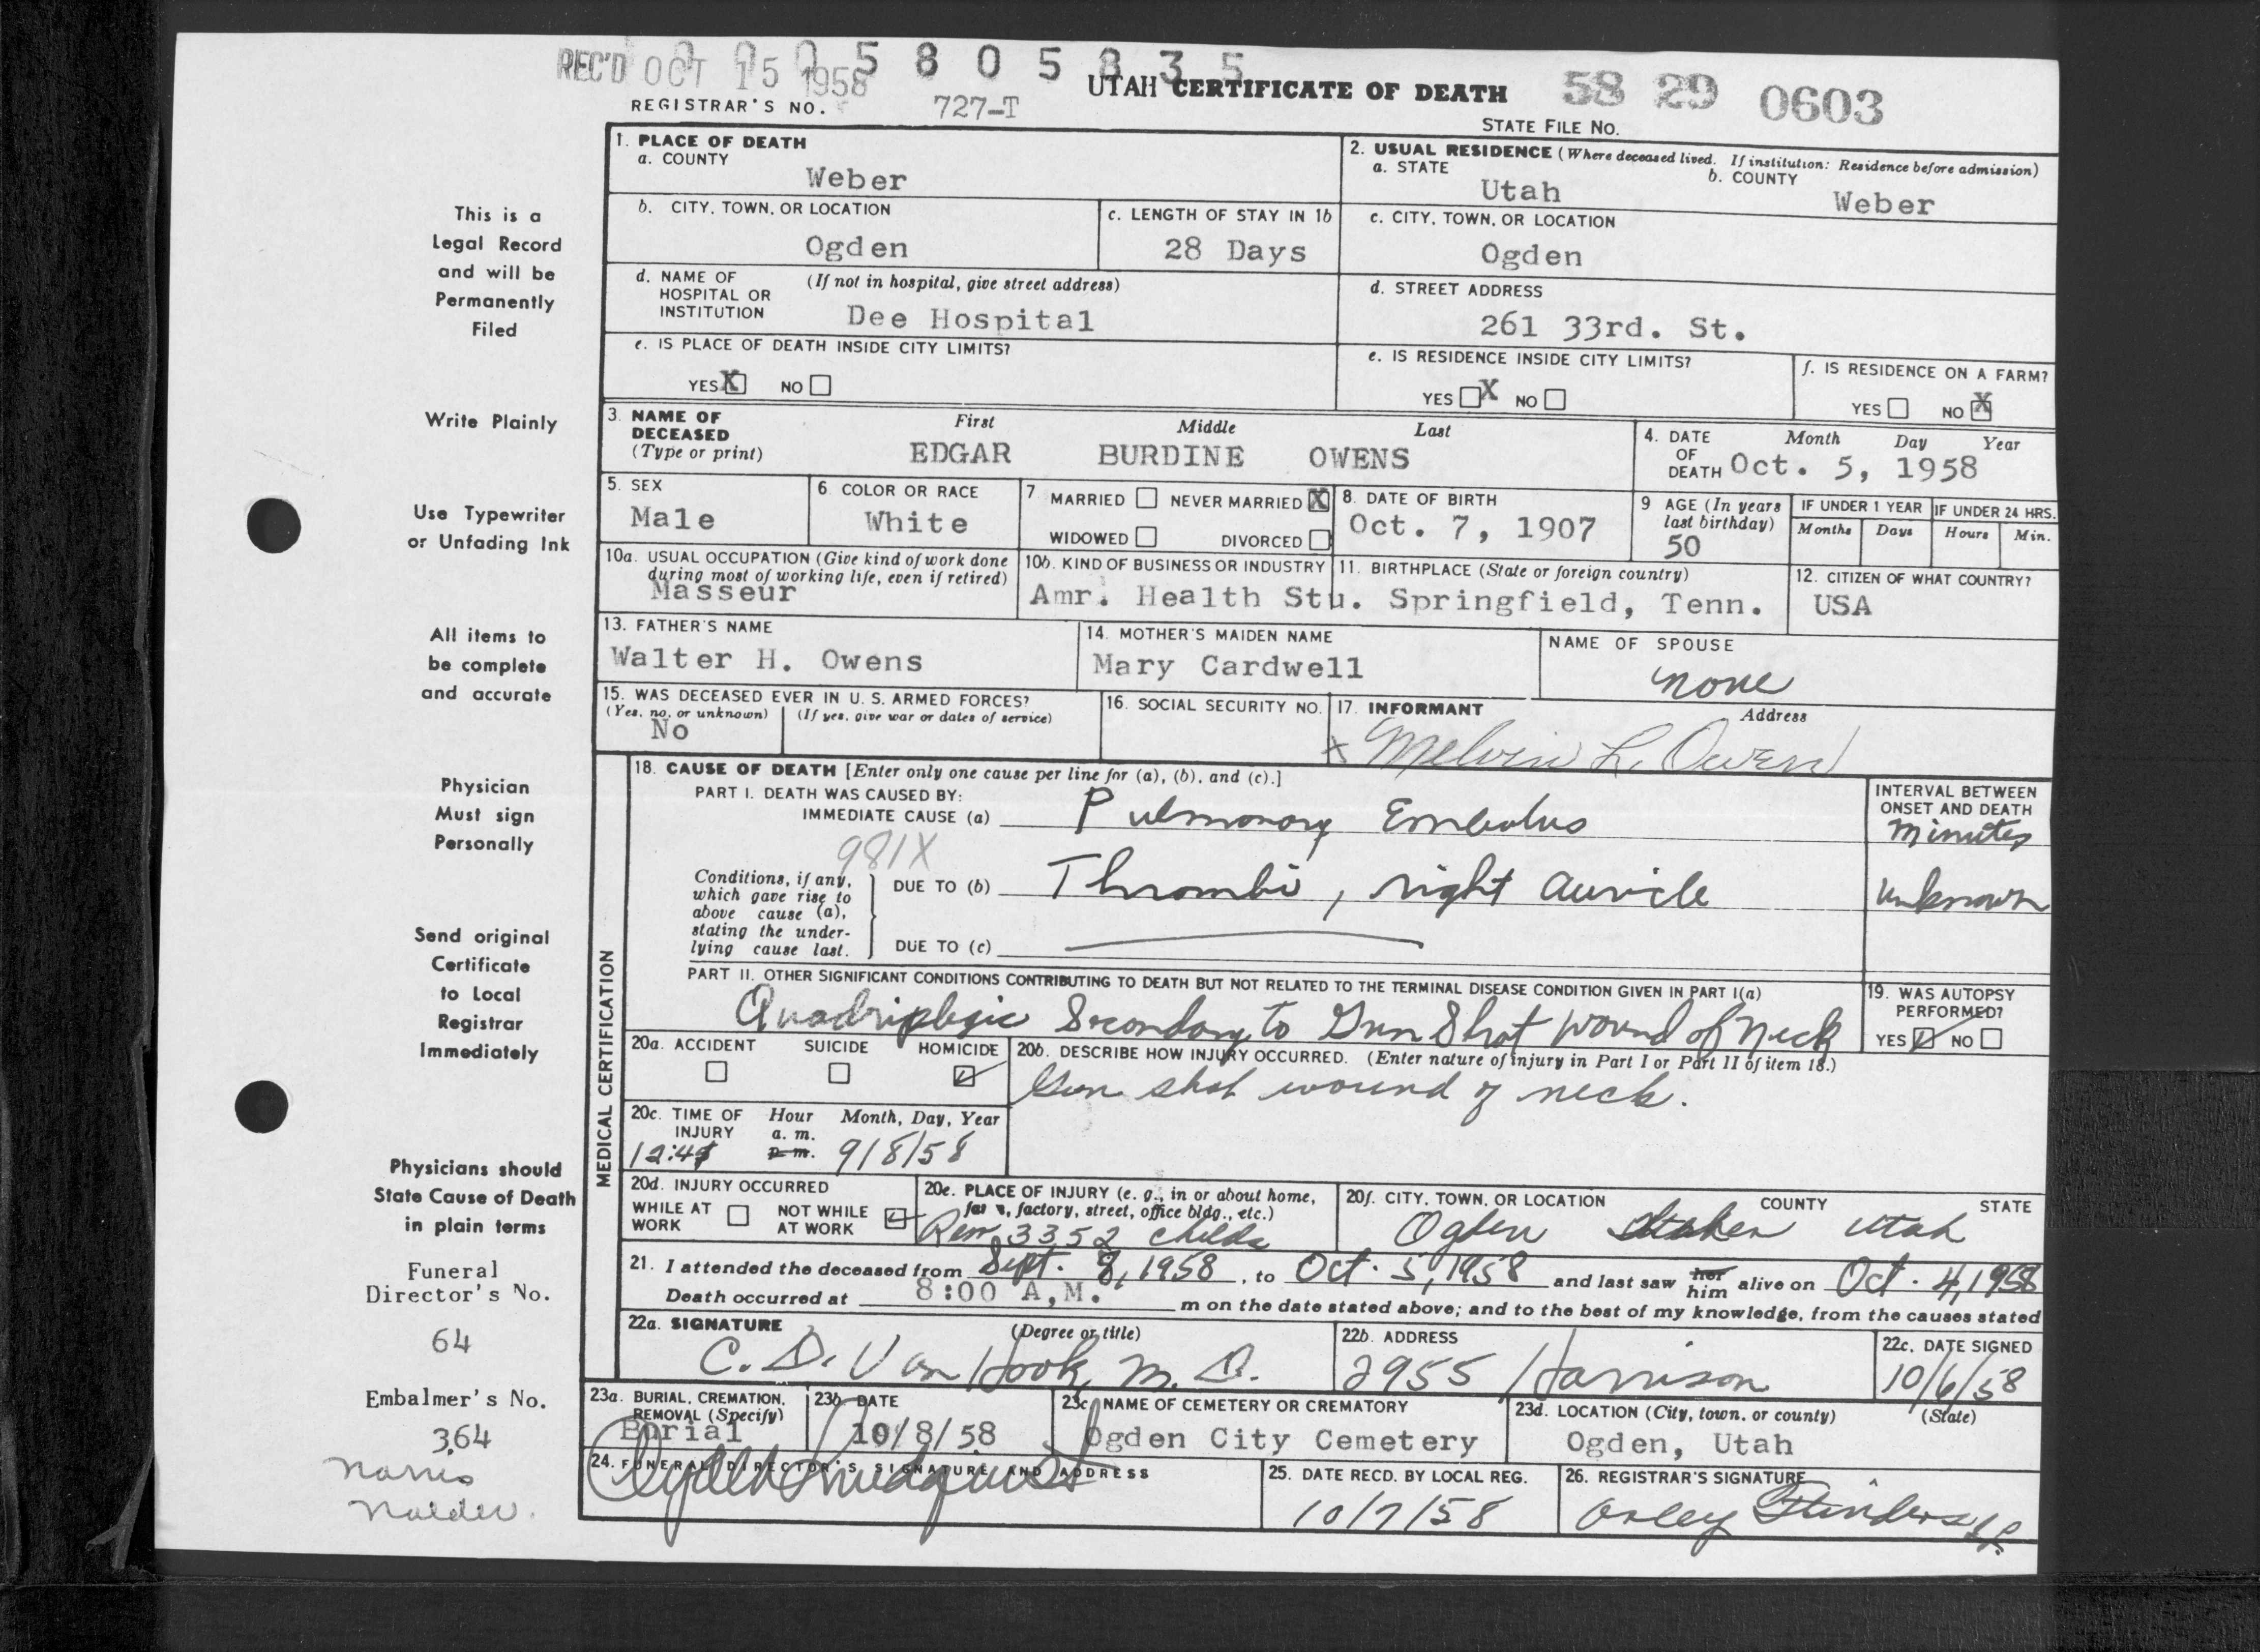 REC'D OCT 15 1958
5 8 0 5 8 3 5
UTAH CERTIFICATE OF DEATH
58 29 0603
REGISTRAR'S NO. 727-T
STATE FILE NO.
1. PLACE OF DEATH
a. COUNTY
Weber
2. USUAL RESIDENCE (Where deceased lived. If institution: Residence before admission)
a. STATE
Utah
b. COUNTY
Weber
b. CITY, TOWN, OR LOCATION
Ogden
c. LENGTH OF STAY IN 1b
28 Days
c. CITY, TOWN, OR LOCATION
Ogden
d. NAME OF HOSPITAL OR INSTITUTION
(If not in hospital, give street address)
Dee Hospital
d. STREET ADDRESS
261 33rd. St.
e. IS PLACE OF DEATH INSIDE CITY LIMITS?
YES X NO
e. IS RESIDENCE INSIDE CITY LIMITS?
YES X NO
f. IS RESIDENCE ON A FARM?
YES NO X
3. NAME OF DECEASED
(Type or print)
First Middle Last
EDGAR BURDINE OWENS
4. DATE OF DEATH
Month Day Year
Oct. 5, 1958
5. SEX
Male
6 COLOR OR RACE
White
7 MARRIED NEVER MARRIED X
WIDOWED DIVORCED
8. DATE OF BIRTH
Oct. 7, 1907
9 AGE (In years last birthday)
50
IF UNDER 1 YEAR
Months Days
IF UNDER 24 HRS.
Hours Min.
10a. USUAL OCCUPATION (Give kind of work done during most of working life, even if retired)
Masseur
10b. KIND OF BUSINESS OR INDUSTRY
Amr. Health Stu.
11. BIRTHPLACE (State or foreign country)
Springfield, Tenn.
12. CITIZEN OF WHAT COUNTRY?
USA
13. FATHER'S NAME
Walter H. Owens
14. MOTHER'S MAIDEN NAME
Mary Cardwell
NAME OF SPOUSE
none
15. WAS DECEASED EVER IN U. S. ARMED FORCES?
(Yes, no, or unknown) (If yes, give war or dates of service)
No
16. SOCIAL SECURITY NO.
17. INFORMANT Address
x Melvin L. Owens
MEDICAL CERTIFICATION
18. CAUSE OF DEATH [Enter only one cause per line for (a), (b), and (c).]
PART I. DEATH WAS CAUSED BY:
IMMEDIATE CAUSE (a) Pulmonary Embolus
INTERVAL BETWEEN ONSET AND DEATH
minutes
981X
Conditions, if any, which gave rise to above cause (a), stating the underlying cause last.
DUE TO (b) Thrombi, right auricle
unknown
DUE TO (c)
PART II. OTHER SIGNIFICANT CONDITIONS CONTRIBUTING TO DEATH BUT NOT RELATED TO THE TERMINAL DISEASE CONDITION GIVEN IN PART I(a)
Quadriplegic Secondary to Gun Shot wound of neck
19. WAS AUTOPSY PERFORMED?
YES NO
20a. ACCIDENT SUICIDE HOMICIDE
20b. DESCRIBE HOW INJURY OCCURRED. (Enter nature of injury in Part I or Part II of item 18.)
Gun shot wound of neck.
20c. TIME OF INJURY
Hour Month, Day, Year
a. m.
p. m.
9/8/58
20d. INJURY OCCURRED
WHILE AT WORK NOT WHILE AT WORK
20e. PLACE OF INJURY (e. g., in or about home, farm, factory, street, office bldg., etc.)
Rear 3352 Childs
20f. CITY, TOWN, OR LOCATION COUNTY STATE
Ogden Utah
21. I attended the deceased from Sept. 8, 1958, to Oct. 5, 1958 and last saw her him alive on Oct. 4, 1958
Death occurred at 8:00 A.M. m on the date stated above; and to the best of my knowledge, from the causes stated
22a. SIGNATURE (Degree or title)
C. D. Van Hook M. D.
22b. ADDRESS
2955 Harrison
22c. DATE SIGNED
10/6/58
23a. BURIAL, CREMATION, REMOVAL (Specify)
Burial
23b. DATE
10/8/58
23c. NAME OF CEMETERY OR CREMATORY
Ogden City Cemetery
23d. LOCATION (City, town, or county) (State)
Ogden, Utah
24. FUNERAL DIRECTOR'S SIGNATURE AND ADDRESS
25. DATE RECD. BY LOCAL REG.
10/7/58
26. REGISTRAR'S SIGNATURE
This is a
Legal Record
and will be
Permanently
Filed
Write Plainly
Use Typewriter
or Unfading Ink
All items to
be complete
and accurate
Physician
Must sign
Personally
Send original
Certificate
to Local
Registrar
Immediately
Physicians should
State Cause of Death
in plain terms
Funeral
Director's No.
64
Embalmer's No.
364
Norris
Nalder